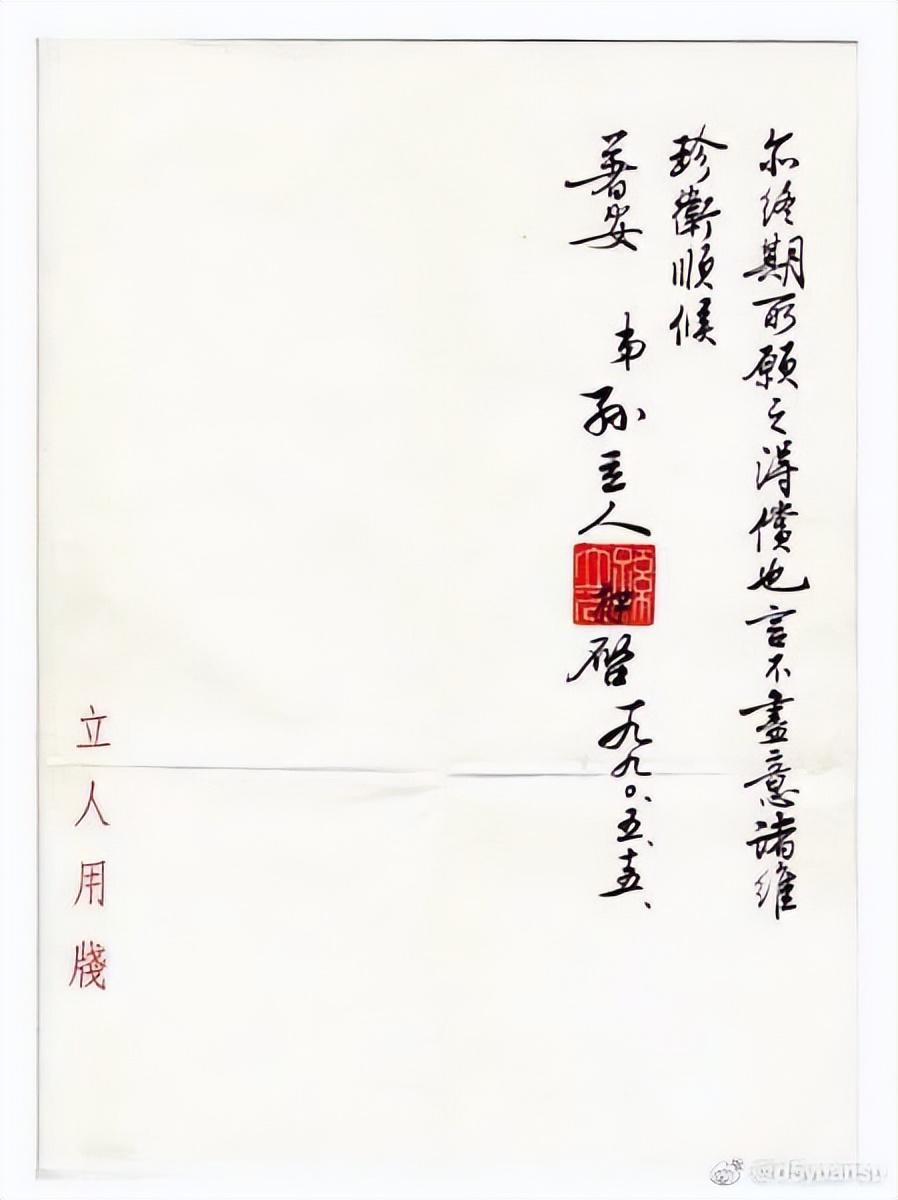 亦終期所願之得償也言不盡意諸維
珍衛順候
著安 弟孫立人 啓 一九九〇、五、十五、
立人用牋